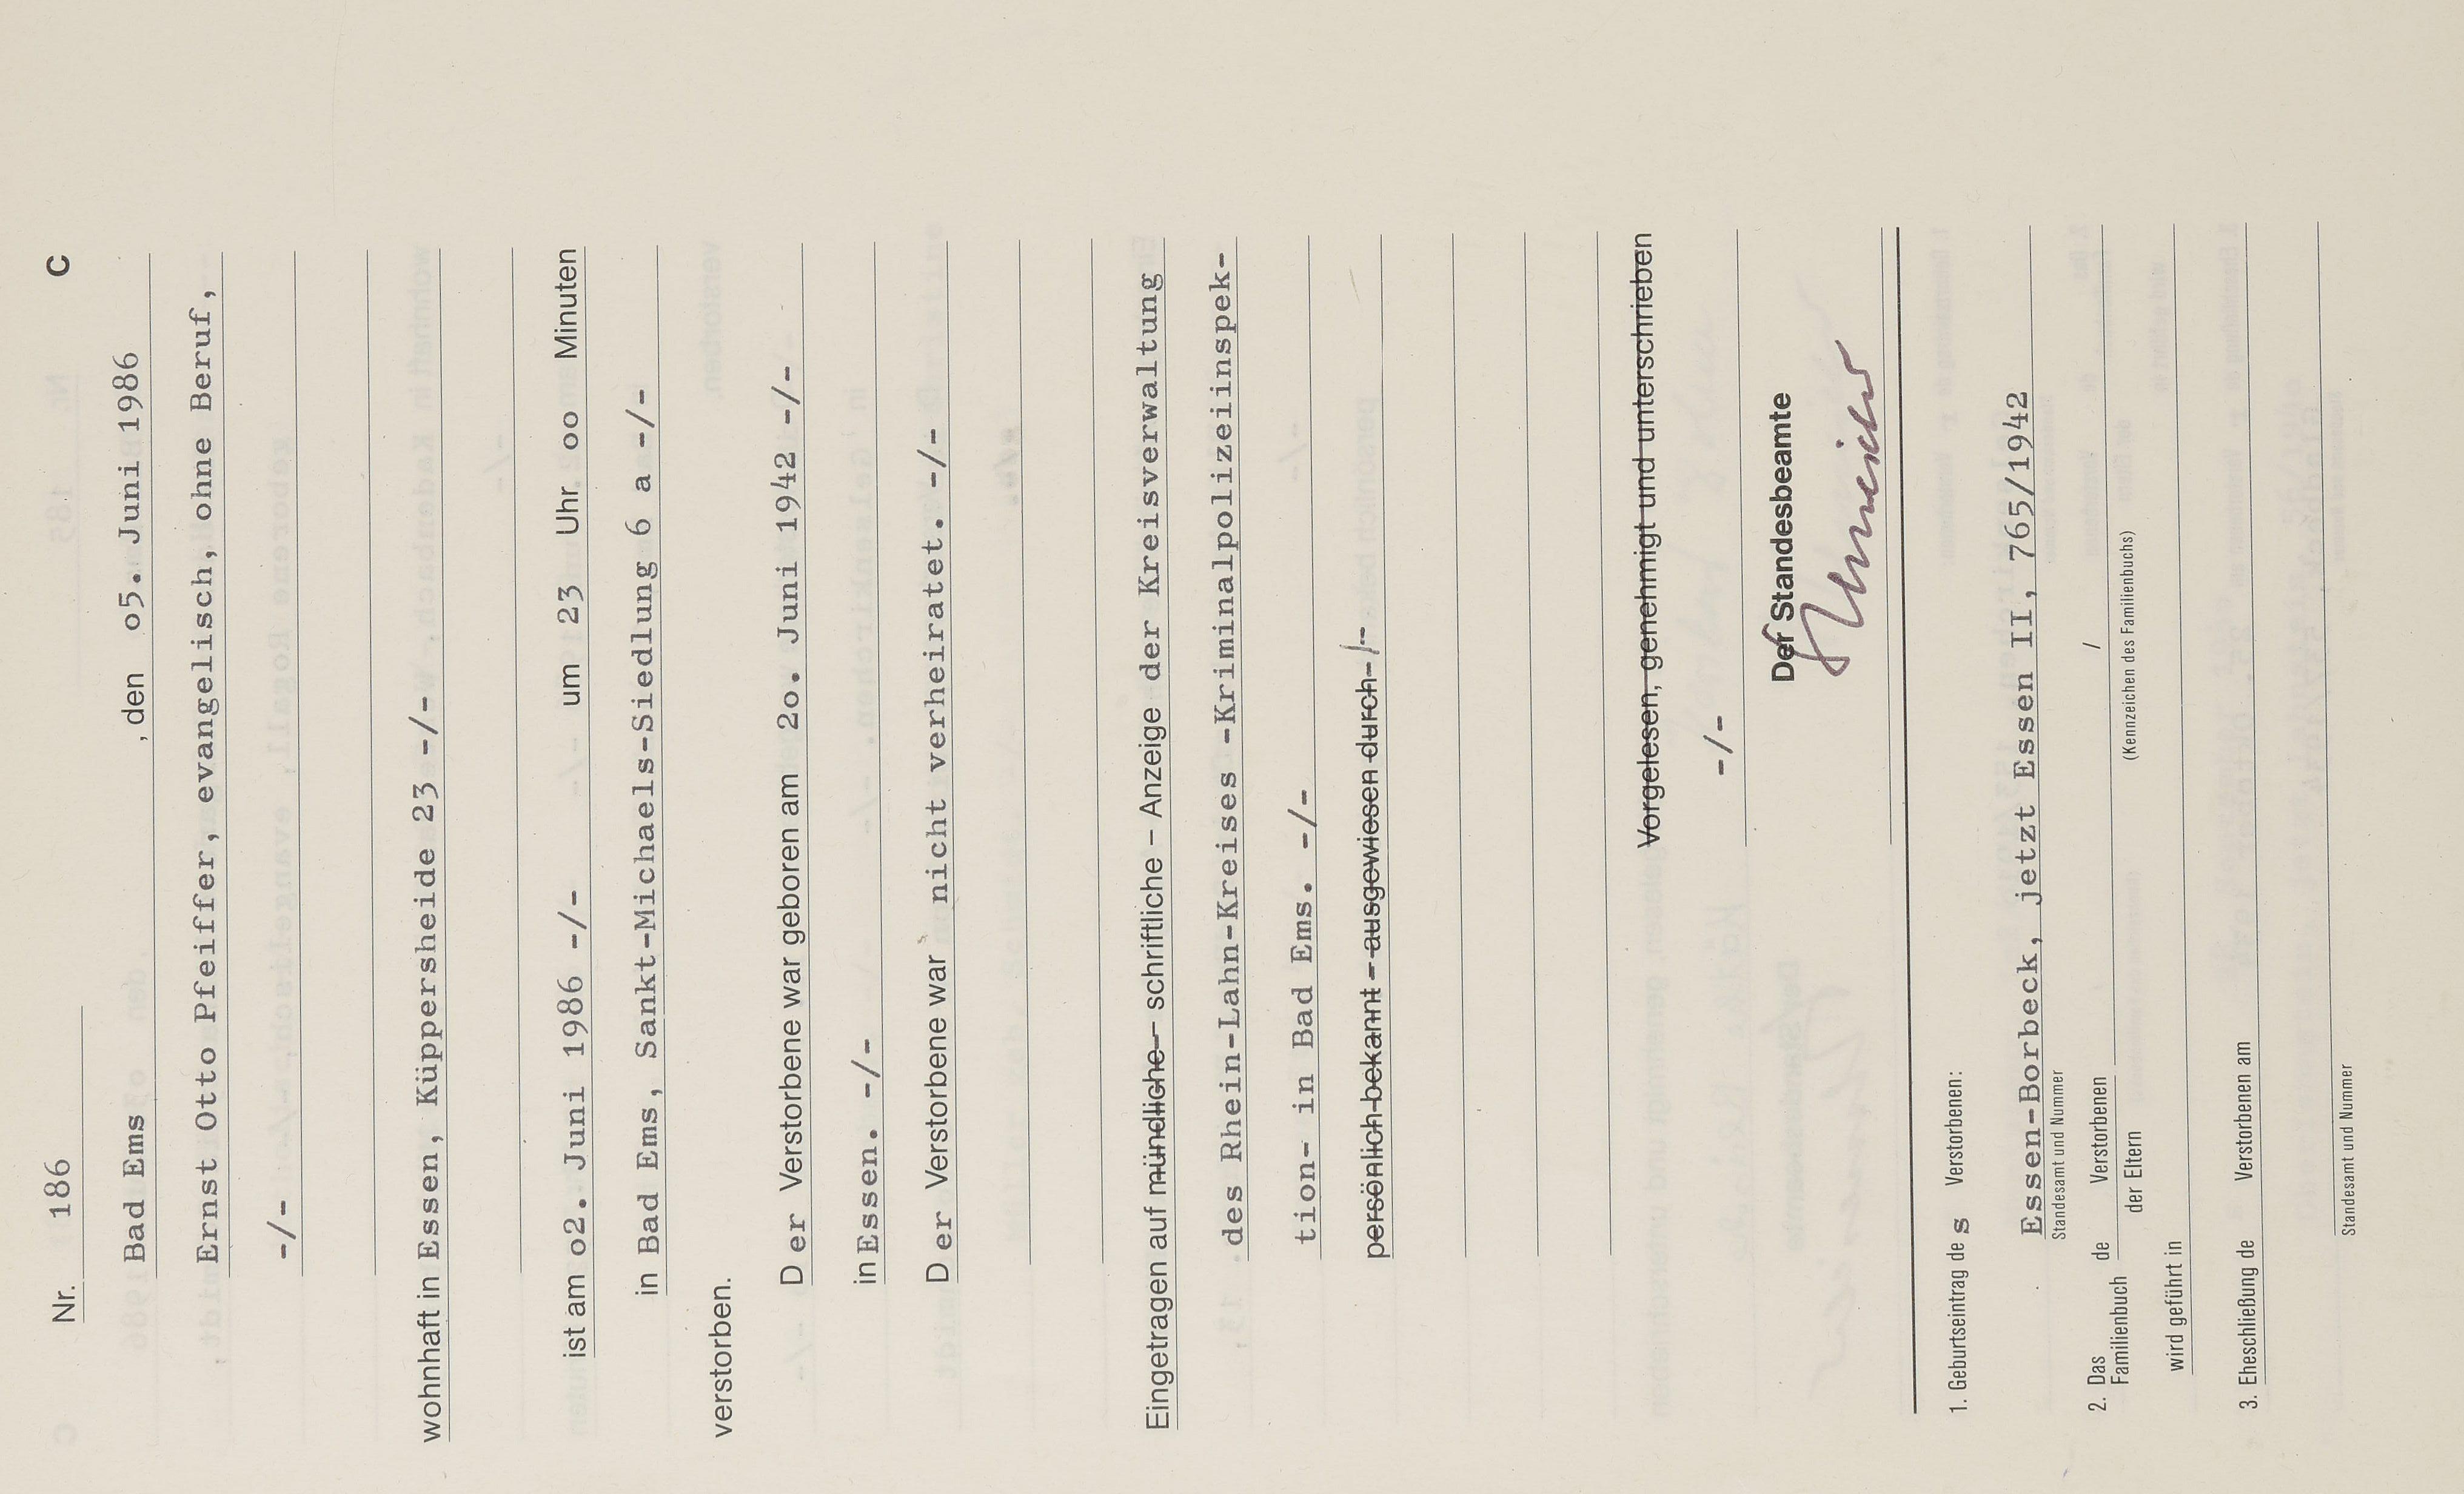 Nr. 186 C
Bad Ems , den o5. Juni 1986
Ernst Otto Pfeiffer, evangelisch, ohne Beruf,
-/-
wohnhaft in Essen, Küppersheide 23 -/-
ist am o2. Juni 1986 -/- um 23 Uhr oo Minuten
in Bad Ems, Sankt-Michaels-Siedlung 6 a -/-
verstorben.
D er Verstorbene war geboren am 2o. Juni 1942 -/-
in Essen. -/-
D er Verstorbene war nicht verheiratet. -/-
Eingetragen auf mündliche – schriftliche – Anzeige der Kreisverwaltung
des Rhein-Lahn-Kreises -Kriminalpolizeiinspek-
tion- in Bad Ems. -/-
persönlich bekannt – ausgewiesen durch -/-
Vorgelesen, genehmigt und unterschrieben
-/-
Der Standesbeamte
1. Geburtseintrag de s Verstorbenen:
Essen-Borbeck, jetzt Essen II, 765/1942
Standesamt und Nummer
2. Das Familienbuch de Verstorbenen /
der Eltern (Kennzeichen des Familienbuchs)
wird geführt in
3. Eheschließung de Verstorbenen am
Standesamt und Nummer